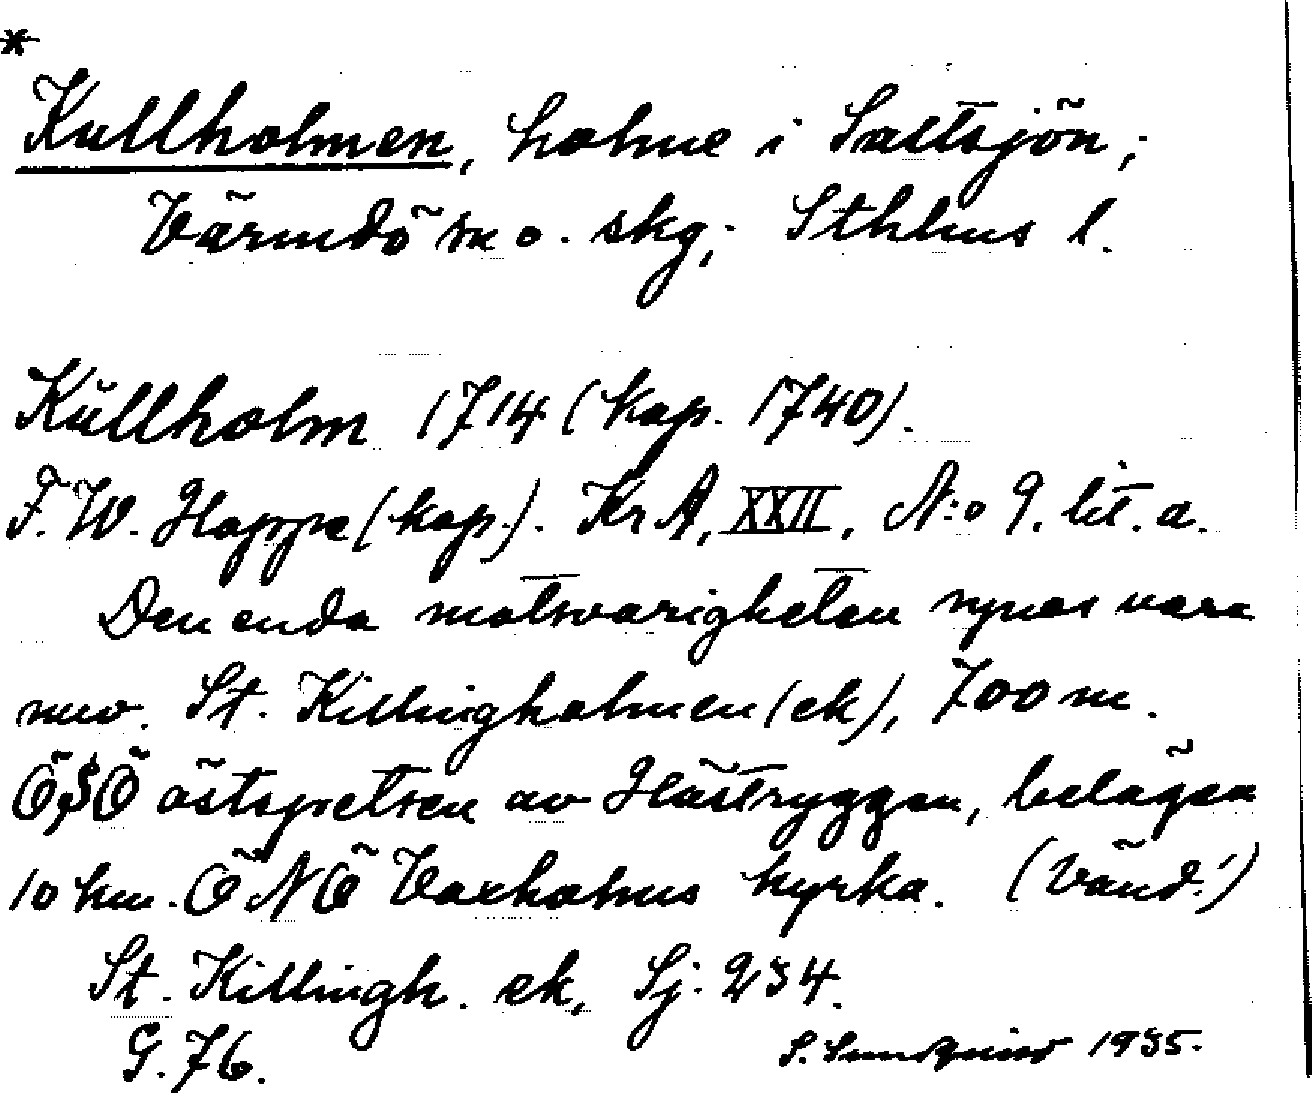 *
Kullholmen, holme i Saltsjön;
Värmdö sn o. skg; Sthlms l.
Kŭllholm 1714 (kop. 1740).
F. W. Hoppe (kop.). KrA, XXII, N:o 9. lit. a.
Den enda motsvarigheten synes vara
nuv. St. Killingholmen (ek), 700 m.
ÖSÖ östspetsen av Hästryggen, belägen
10 km. ÖNÖ Vaxholms kyrka. (Vänd!)
St. Killingh. ek, Sj: 234.
G. 76.
S. Lundqvist 1935.